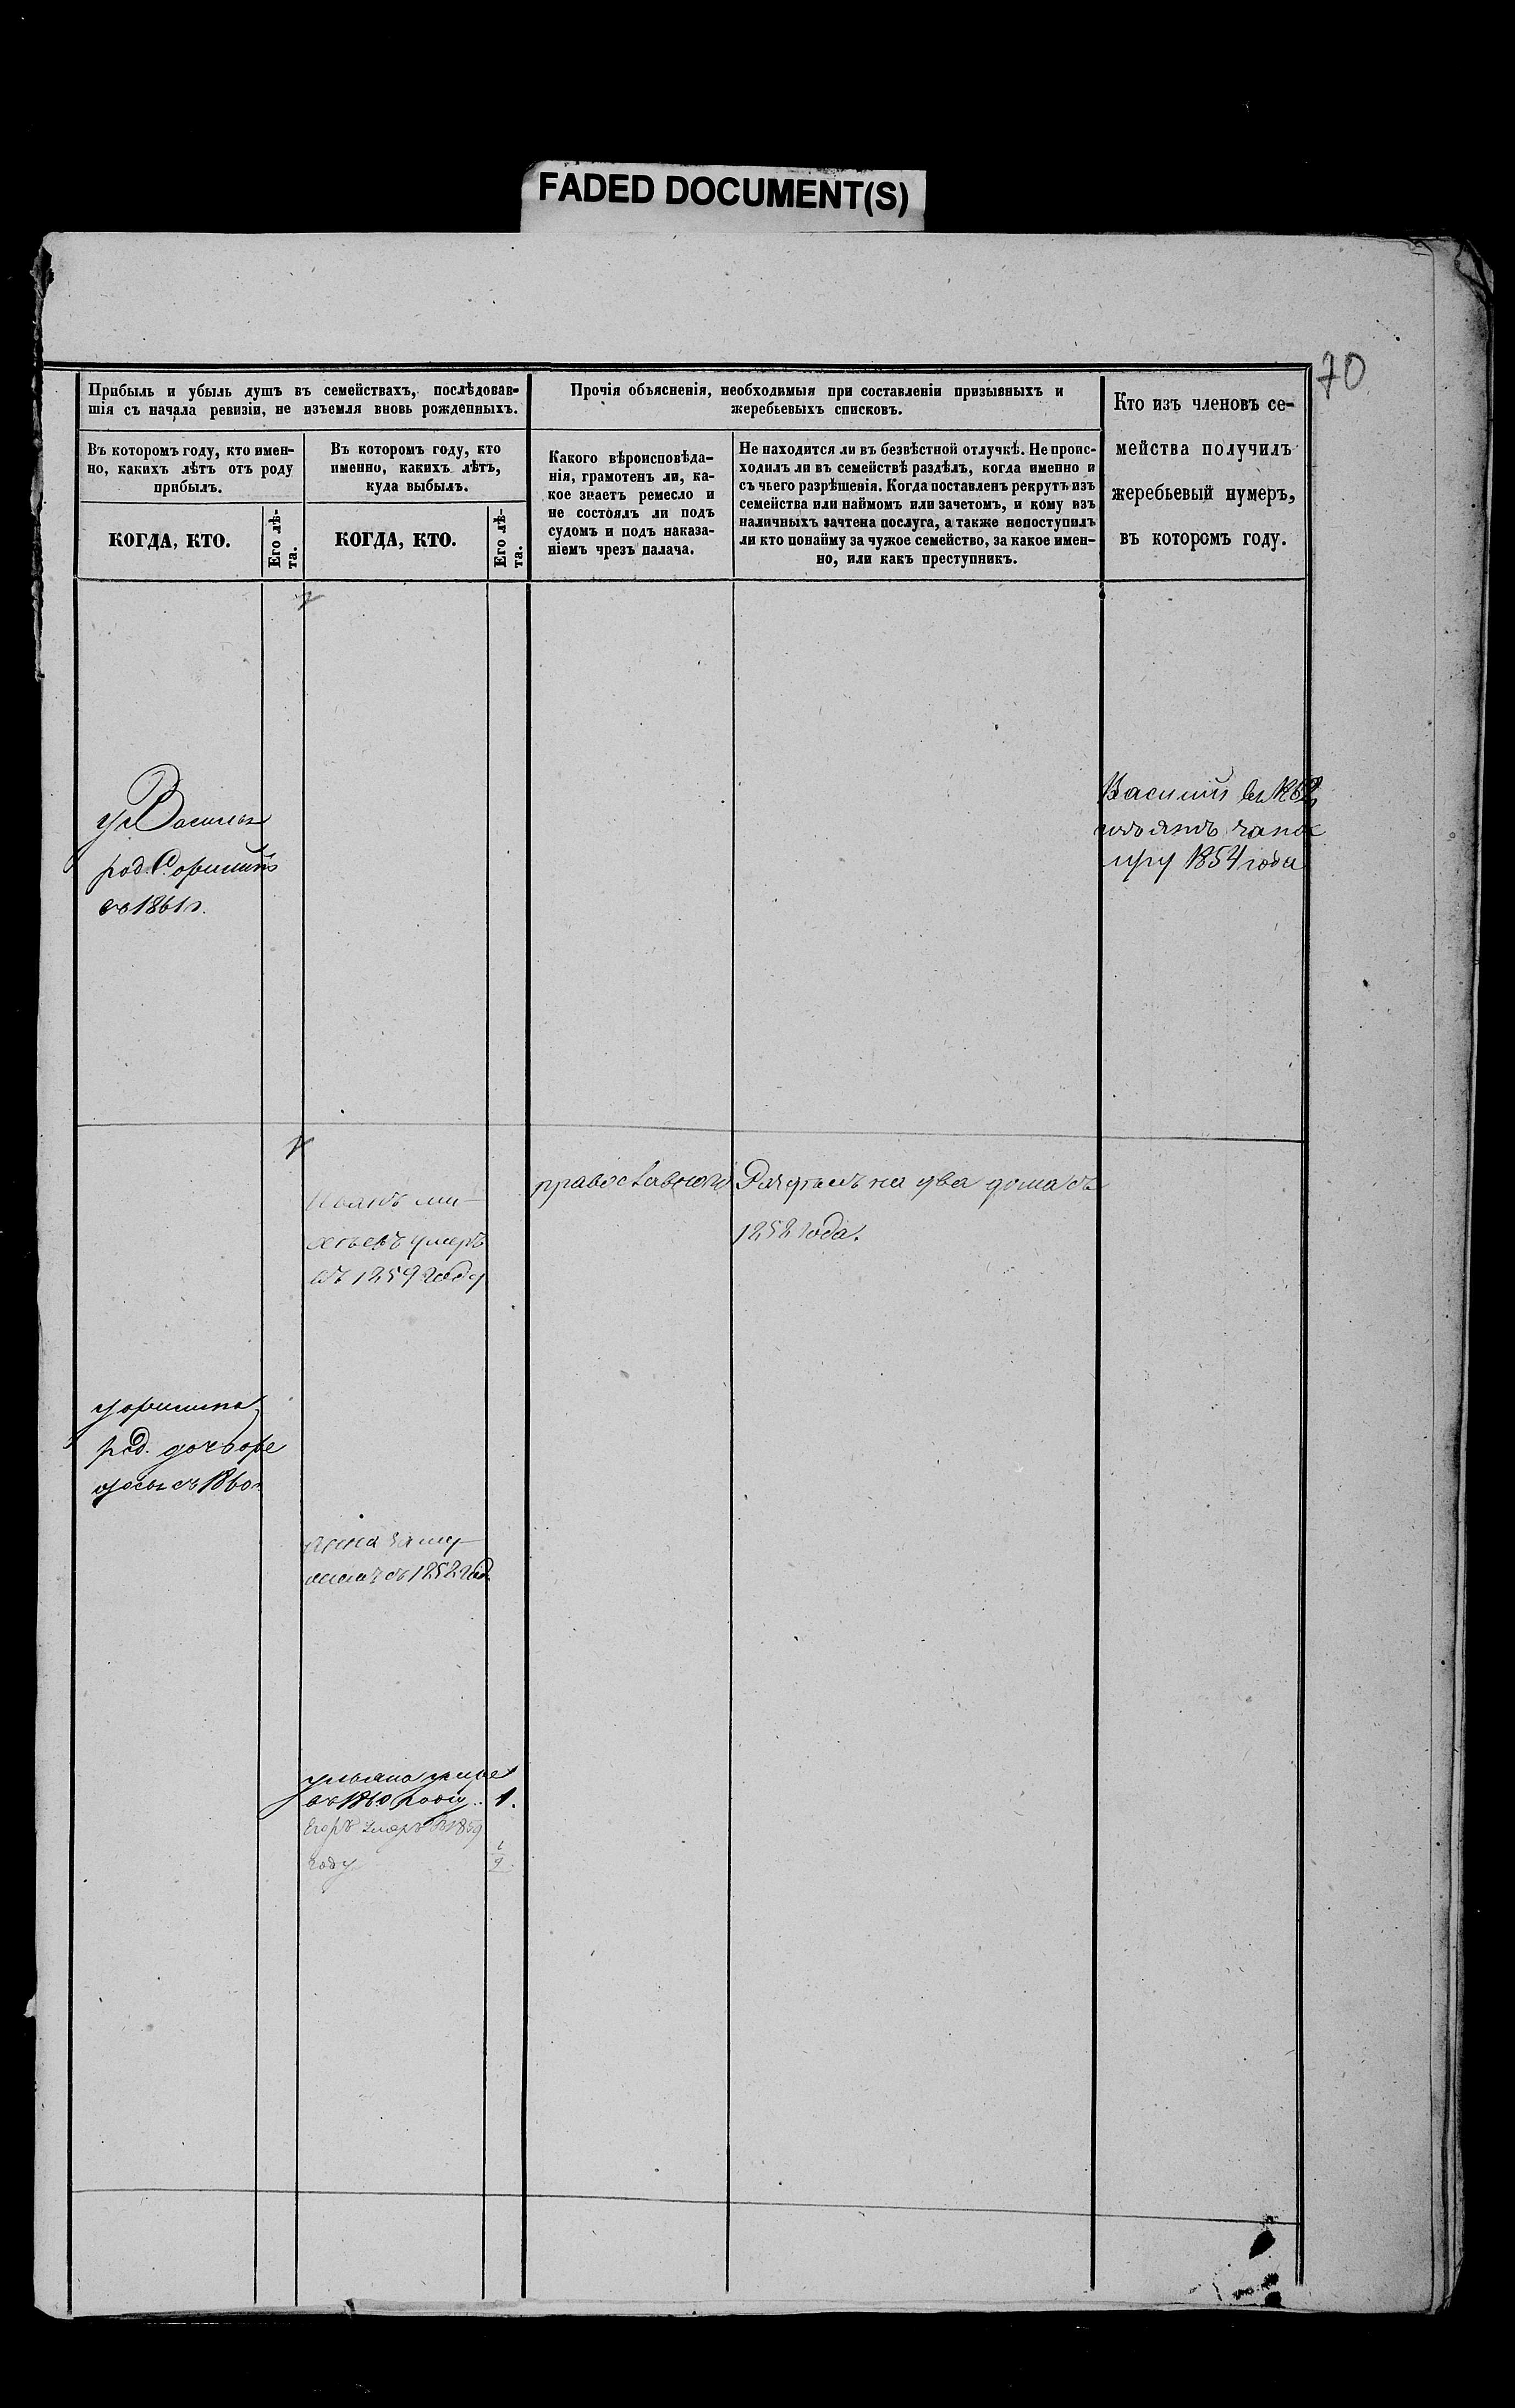 FADED DOCUMENT(S)
70
Прибыль и убыль душъ въ семействахъ, послѣдовав-
шія съ начала ревизіи, не изъемля вновь рожденныхъ.
Въ которомъ году, кто имен-
но, какихъ лѣтъ отъ роду
прибылъ.
КОГДА, КТО.
Его лѣ-
та.
Въ которомъ году, кто
именно, какихъ лѣтъ,
куда выбылъ.
КОГДА, КТО.
Его лѣ-
та.
Прочія объясненія, необходимыя при составленіи призывныхъ и
жеребьевыхъ списковъ.
Какого вѣроисповѣда-
нія, грамотенъ ли, ка-
кое знаетъ ремесло и
не состоялъ ли подъ
судомъ и подъ наказа-
ніемъ чрезъ палача.
Не находится ли въ безвѣстной отлучкѣ. Не проис-
ходилъ ли въ семействѣ раздѣлъ, когда именно и
съ чьего разрѣшенія. Когда поставленъ рекрутъ изъ
семейства или наймомъ или зачетомъ, и кому изъ
наличныхъ зачтена послуга, а также непоступилъ
ли кто понайму за чужое семейство, за какое имен-
но, или какъ преступникъ.
Кто изъ членовъ се-
мейства получилъ
жеребьевый нумеръ,
въ которомъ году.
у Василья
род.
въ 1861 г.
Василій
1854 года
Иванъ ми-
хѣевъ умеръ
въ 1859 году
православнаго
на два дома въ
1858 года.
род. дочь
въ 1860
Анна заму-
въ 1858 год.
ульяна умре
въ 1860 году 1.
Егоръ умеръ в 1859
году